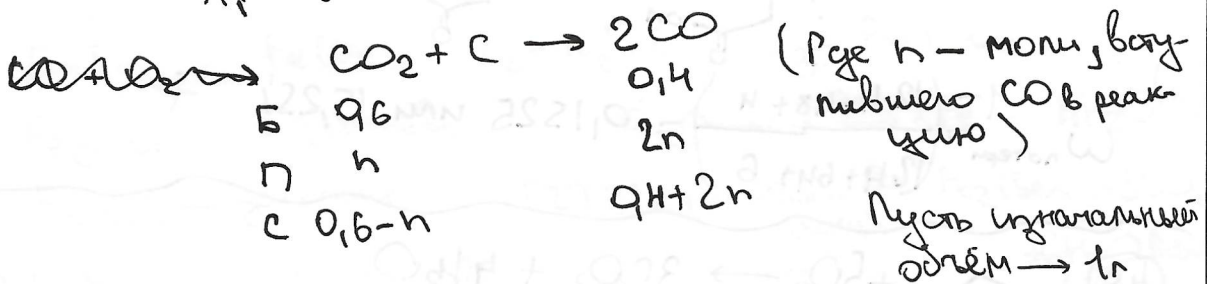 CO₂ + C → 2CO (где n – моли, всту-
0,4 пившего CO в реак-
Б 0,6 2n цию)
П n
С 0,6-n 0,4+2n Пусть изначальный
объём → 1л